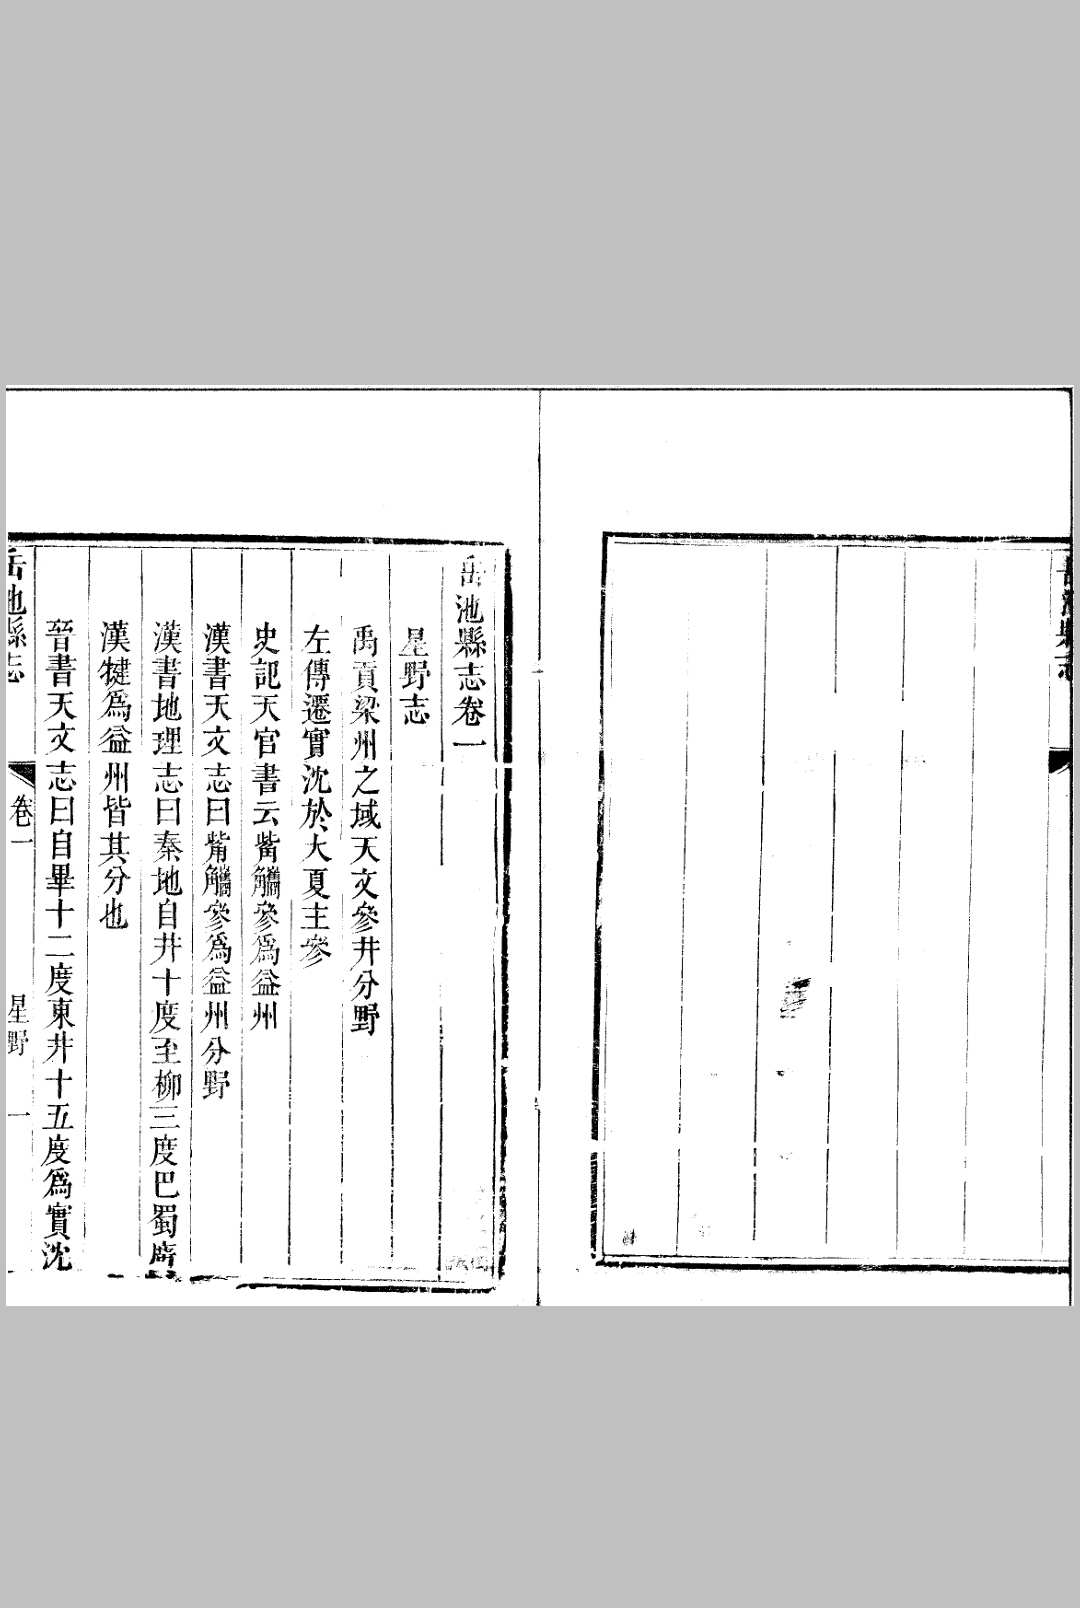 岳池縣志
岳池縣志卷一
星野志
禹貢梁州之域天文參井分野
左傳遷實沈於大夏主參
史記天官書云觜觿參爲益州
漢書天文志曰觜觿參爲益州分野
漢書地理志曰秦地自井十度至柳三度巴蜀廣
漢犍爲益州皆其分也
晉書天文志曰自畢十二度東井十五度爲實沈
岳池縣志
卷一
星野
一